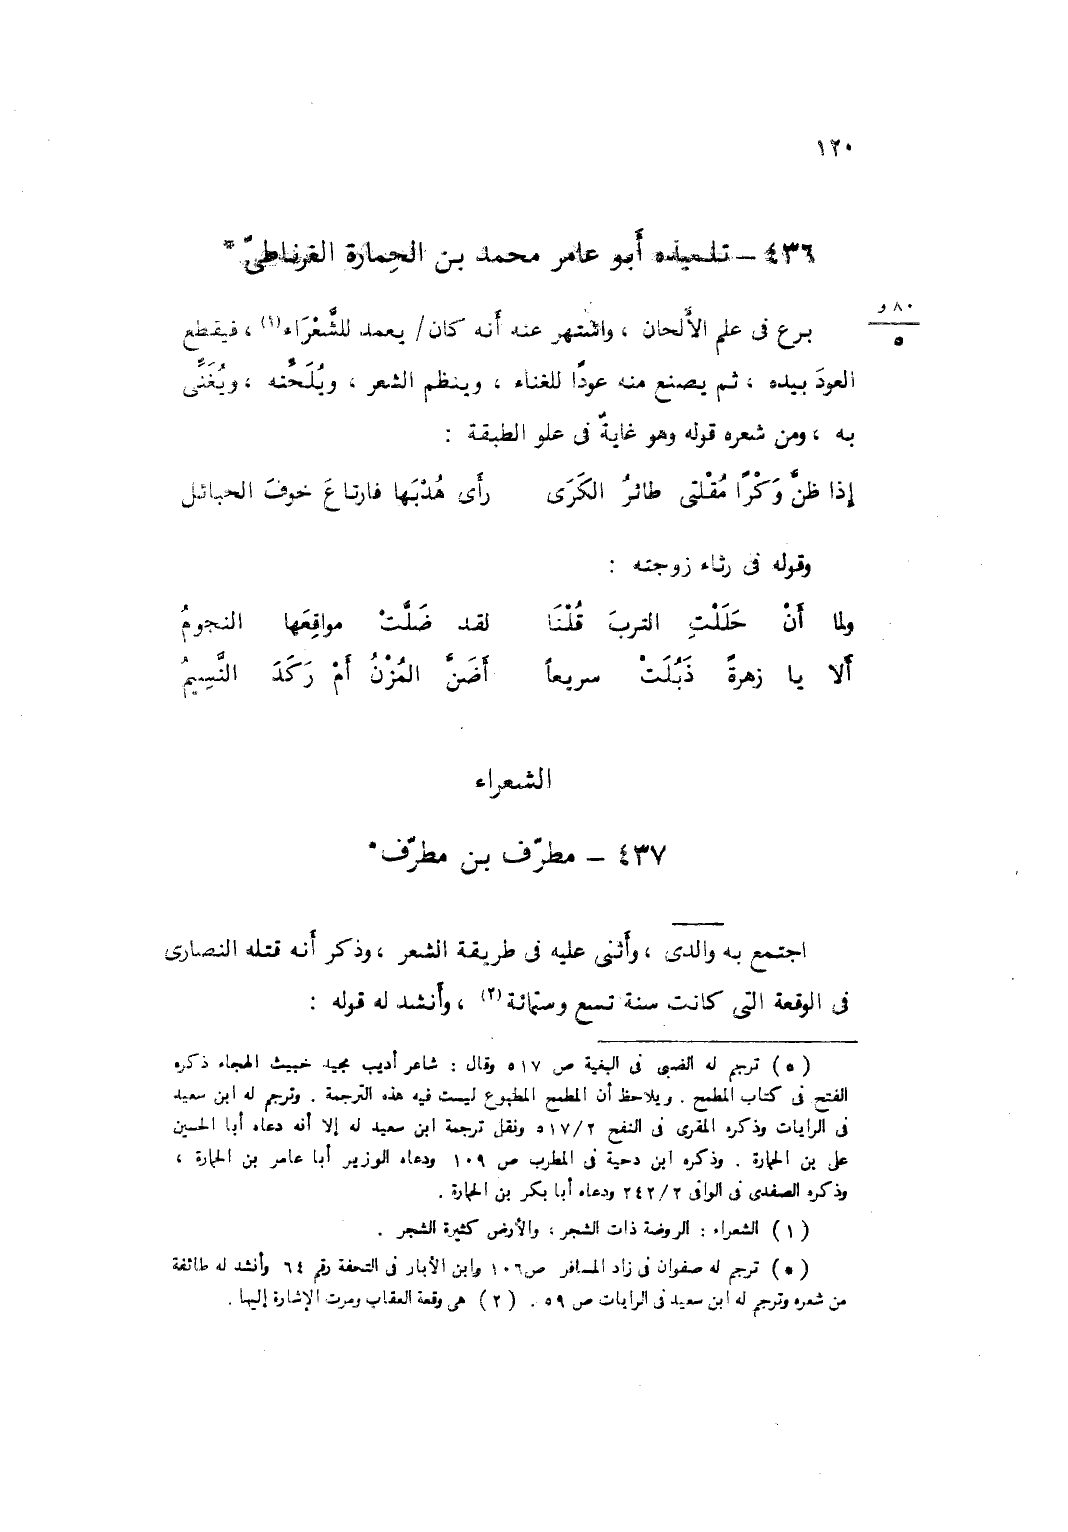 ١٢٠
٤٣٦ – تلميذه أبو عامر محمد بن الحِمارة الغرناطىّ *
٨٠ و
٥
برع فى علم الأَلحان ، واشتهر عنه أَنه كان/ يعمد للشَّعْرَاء(١) ، فيقطع
العودَ بيده ، ثم يصنع منه عودًا للغناء ، وينظم الشعر ، ويُلَحِّنه ، ويُغَنِّى
به ، ومن شعره قوله وهو غايةٌ فى علو الطبقة :
إذا ظنَّ وَكْرًا مُقْلتى طائرُ الكَرَى رأَى هُدْبَها فارتاعَ خوفَ الحبائل
وقوله فى رثاء زوجته :
ولما أَنْ حَلَلْتِ التربَ قُلْنَا لقد ضَلَّتْ مواقِعَها النجومُ
أَلا يا زهرةً ذَبُلَتْ سريعاً أَضَنَّ المُزْنُ أَمْ رَكَدَ النَّسِيمُ
الشعراء
٤٣٧ – مطرّف بن مطرّف*
اجتمع به والدى ، وأَثنى عليه فى طريقة الشعر ، وذكر أَنه قتله النصارى
فى الوقعة التى كانت سنة تسع وستمائة(٢) ، وأَنشد له قوله :
(*) ترجم له الضبى فى البغية ص ٥١٧ وقال : شاعر أديب مجيد خبيث الهجاء ذكره
الفتح فى كتاب المطمح . ويلاحظ أن المطمح المطبوع ليست فيه هذه الترجمة . وترجم له ابن سعيد
فى الرايات وذكره المقرى فى النفح ٥١٧/٢ ونقل ترجمة ابن سعيد له إلا أنه دعاه أبا الحسين
على بن الحمارة . وذكره ابن دحية فى المطرب ص ١٠٩ ودعاه الوزير أبا عامر بن الحمارة ،
وذكره الصفدى فى الوافى ٢٤٢/٢ ودعاه أبا بكر بن الحمارة .
(١) الشعراء : الروضة ذات الشجر ، والأرض كثيرة الشجر .
(*) ترجم له صفوان فى زاد المسافر ص١٠٦ وابن الأبار فى التحفة رقم ٦٤ وأنشد له طائفة
من شعره وترجم له ابن سعيد فى الرايات ص ٥٩ . (٢) هى وقعة العقاب ومرت الإشارة إليها .